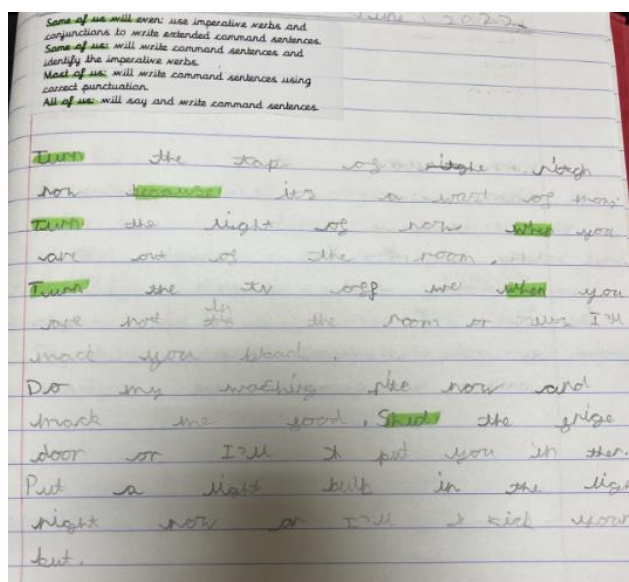 Some of us will even: use imperative verbs and
conjunctions to write extended command sentences.
Some of us: will write command sentences and
identify the imperative verbs.
Most of us: will write command sentences using
correct punctuation.
All of us: will say and write command sentences.
Turn the tap of
now because its a wast of mony
Turn the light of now when you
are out of the room.
Turn the tv off when you
are not in the room or I'll
mack you
Do my washing now and
mack me good. Shut the frige
door or I'll put you in ther.
Put a light bulb in the
right now or I'll kick your
but.